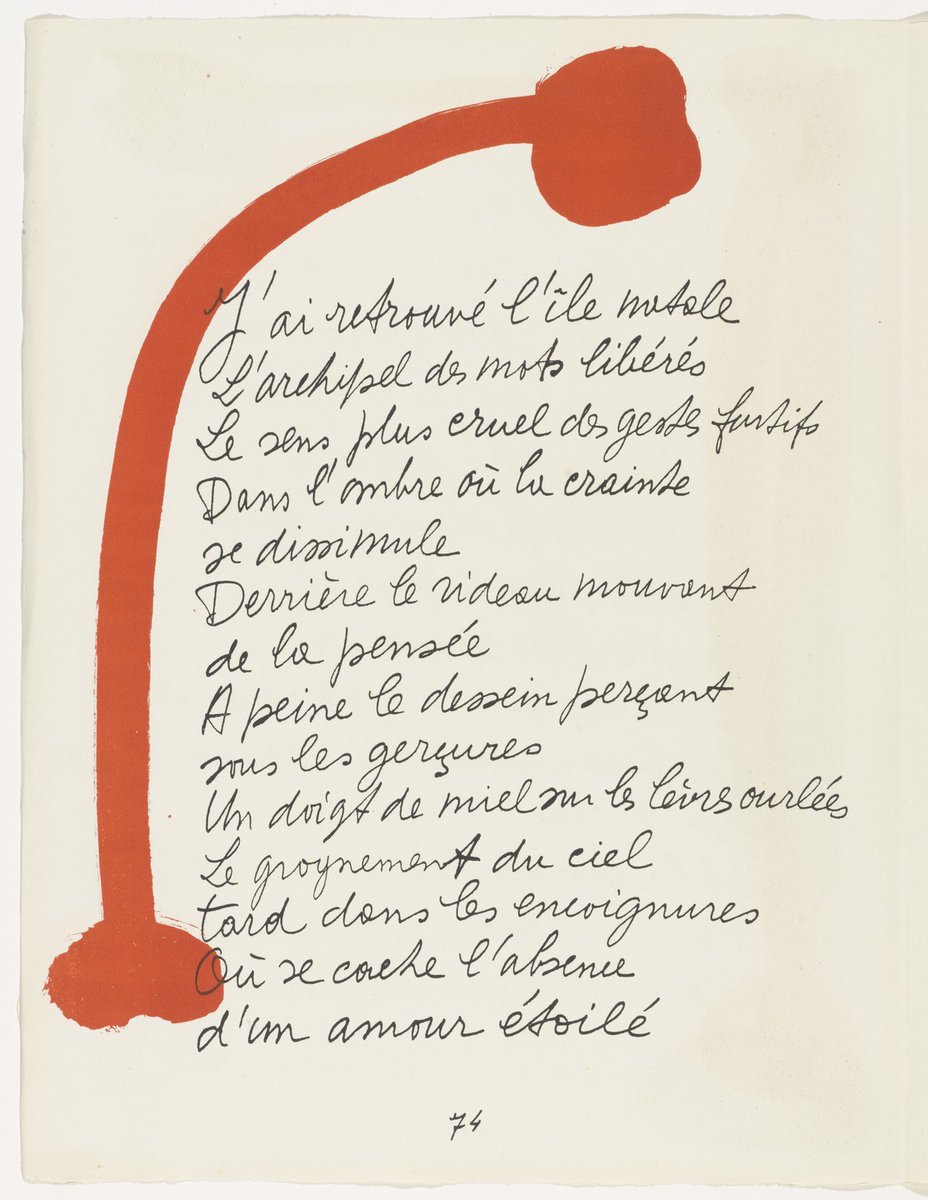 J'ai retrouvé l'île natale
L'archipel des mots libérés
Le sens plus cruel des gestes furtifs
Dans l'ombre où la crainte
se dissimule
Derrière le rideau mouvant
de la pensée
A peine le dessein perçant
sous les gerçures
Un doigt de miel sur les lèvres ourlées
Le grognement du ciel
tard dans les encoignures
Où se cache l'absence
d'un amour étoilé
74